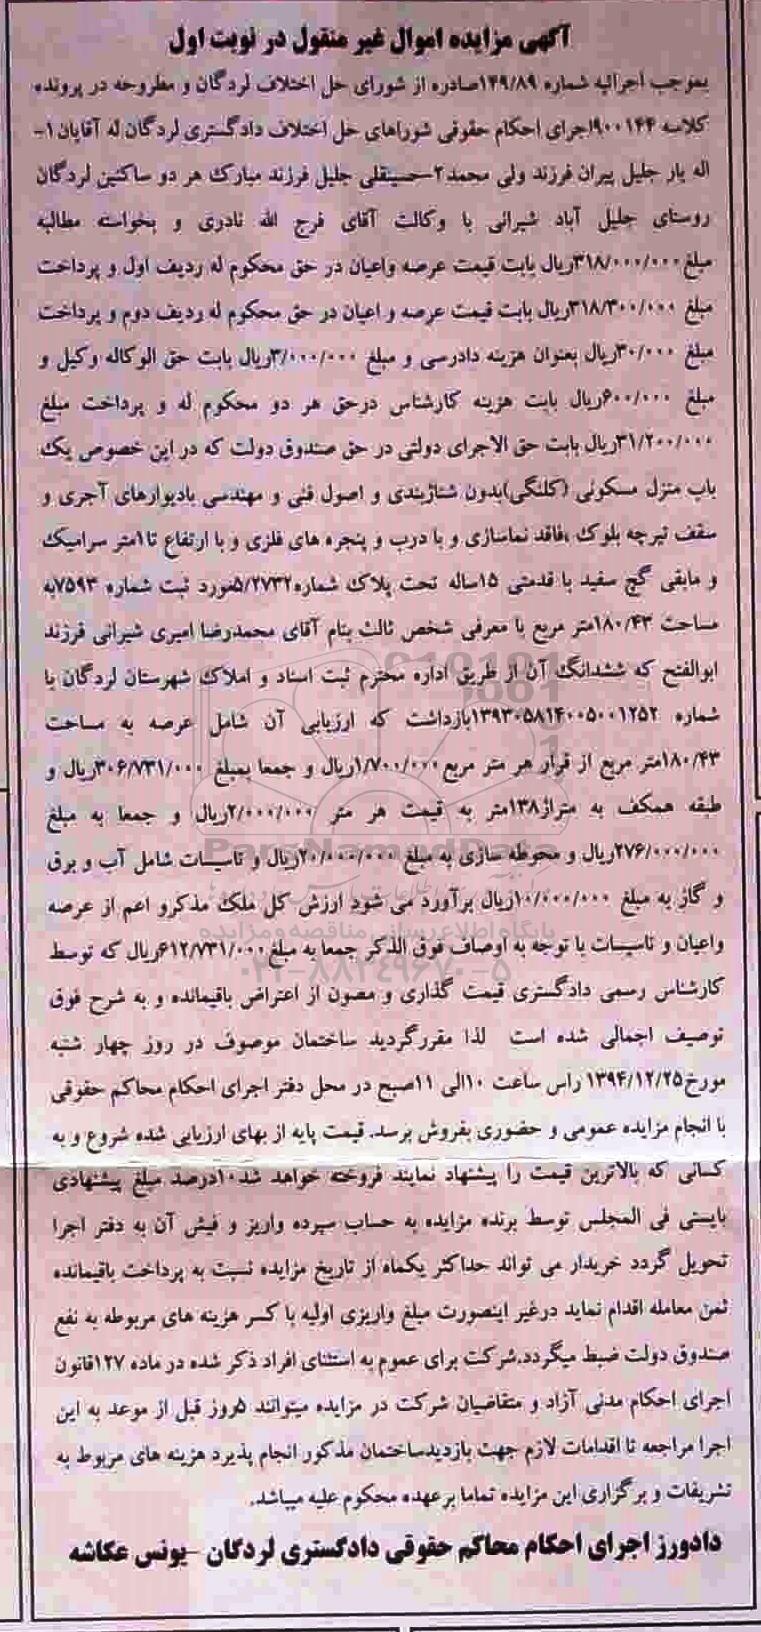 آگهی مزایده اموال غیر منقول در نوبت اول
بموجب اجرائیه شماره ۱۴۹/۸۹صادره از شورای حل اختلاف لردگان و مطروحه در پرونده
کلاسه ۹۰۰۱۴۴اجرای احکام حقوقی شوراهای حل اختلاف دادگستری لردگان له آقایان۱-
اله یار جلیل پیران فرزند ولی محمد۲-حسینقلی جلیل فرزند مبارک هر دو ساکنین لردگان
روستای جلیل آباد شیرانی با وکالت آقای فرج الله نادری و بخواسته مطالبه
مبلغ۳۱۸/۰۰۰/۰۰۰ریال بابت قیمت عرصه واعیان در حق محکوم له ردیف اول و پرداخت
مبلغ ۳۱۸/۳۰۰/۰۰۰ریال بابت قیمت عرصه و اعیان در حق محکوم له ردیف دوم و پرداخت
مبلغ ۳۰/۰۰۰ریال بعنوان هزینه دادرسی و مبلغ ۳/۰۰۰/۰۰۰ریال بابت حق الوکاله وکیل و
مبلغ ۶۰۰/۰۰۰ریال بابت هزینه کارشناس درحق هر دو محکوم له و پرداخت مبلغ
۳۱/۲۰۰/۰۰۰ریال بابت حق الاجرای دولتی در حق صندوق دولت که در این خصوص یک
باب منزل مسکونی (کلنگی)بدون شناژبندی و اصول فنی و مهندسی بادیوارهای آجری و
سقف تیرچه بلوک ،فاقد نماسازی و با درب و پنجره های فلزی و با ارتفاع تا۱متر سرامیک
و مابقی گچ سفید با قدمتی ۱۵ساله تحت پلاک شماره۵/۲۷۳۲مورد ثبت شماره ۷۵۹۳به
مساحت ۱۸۰/۴۳متر مربع با معرفی شخص ثالث بنام آقای محمدرضا امیری شیرانی فرزند
ابوالفتح که ششدانگ آن از طریق اداره محترم ثبت اسناد و املاک شهرستان لردگان با
شماره ۱۳۹۳۰۵۸۱۴۰۰۵۰۰۱۲۵۲بازداشت که ارزیابی آن شامل عرصه به مساحت
۱۸۰/۴۳متر مربع از قرار هر متر مربع۱/۷۰۰/۰۰۰ریال و جمعا بمبلغ ۳۰۶/۷۳۱/۰۰۰ریال و
طبقه همکف به متراژ۱۳۸متر به قیمت هر متر ۲/۰۰۰/۰۰۰ریال و جمعا به مبلغ
۲۷۶/۰۰۰/۰۰۰ریال و محوطه سازی به مبلغ ۲۰/۰۰۰/۰۰۰ریال و تاسیسات شامل آب و برق
و گاز به مبلغ ۱۰/۰۰۰/۰۰۰ریال برآورد می شود ارزش کل ملک مذکرو اعم از عرصه
واعیان و تاسیسات با توجه به اوصاف فوق الذکر جمعا به مبلغ۶۱۲/۷۳۱/۰۰۰ریال که توسط
کارشناس رسمی دادگستری قیمت گذاری و مصون از اعتراض باقیمانده و به شرح فوق
توصیف اجمالی شده است لذا مقررگردید ساختمان موصوف در روز چهار شنبه
مورخ۱۳۹۴/۱۲/۲۵ راس ساعت ۱۰الی ۱۱صبح در محل دفتر اجرای احکام محاکم حقوقی
با انجام مزایده عمومی و حضوری بفروش برسد. قیمت پایه از بهای ارزیابی شده شروع و به
کسانی که بالاترین قیمت را پیشنهاد نمایند فروخته خواهد شد۱۰درصد مبلغ پیشنهادی
بایستی فی المجلس توسط برنده مزایده به حساب سپرده واریز و فیش آن به دفتر اجرا
تحویل گردد خریدار می تواند حداکثر یکماه از تاریخ مزایده نسبت به پرداخت باقیمانده
ثمن معامله اقدام نماید درغیر اینصورت مبلغ واریزی اولیه با کسر هزینه های مربوطه به نفع
صندوق دولت ضبط میگردد.شرکت برای عموم به استثنای افراد ذکر شده در ماده ۱۲۷قانون
اجرای احکام مدنی آزاد و متقاضیان شرکت در مزایده میتوانند ۵روز قبل از موعد به این
اجرا مراجعه تا اقدامات لازم جهت بازدیدساختمان مذکور انجام پذیرد هزینه های مربوط به
تشریفات و برگزاری این مزایده تماما برعهده محکوم علیه میباشد.
دادورز اجرای احکام محاکم حقوقی دادگستری لردگان -یونس عکاشه
ParsNamadData
پایگاه اطلاع رسانی مناقصه ومزایده
۰۲۱-۸۸۳۴۹۶۷۰-۵